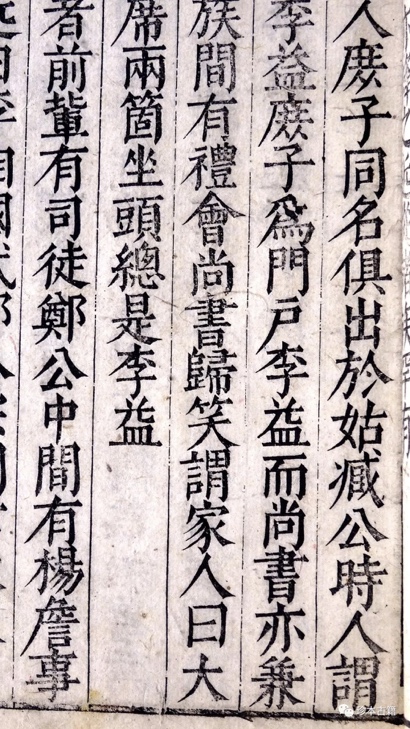 人庶子同名俱出於姑臧公時人謂
李益庶子爲門户李益而尚書亦兼
族間有禮會尚書歸笑謂家人曰大
席兩箇坐頭總是李益
者前輩有司徒鄭公中間有楊詹事
珍本古籍